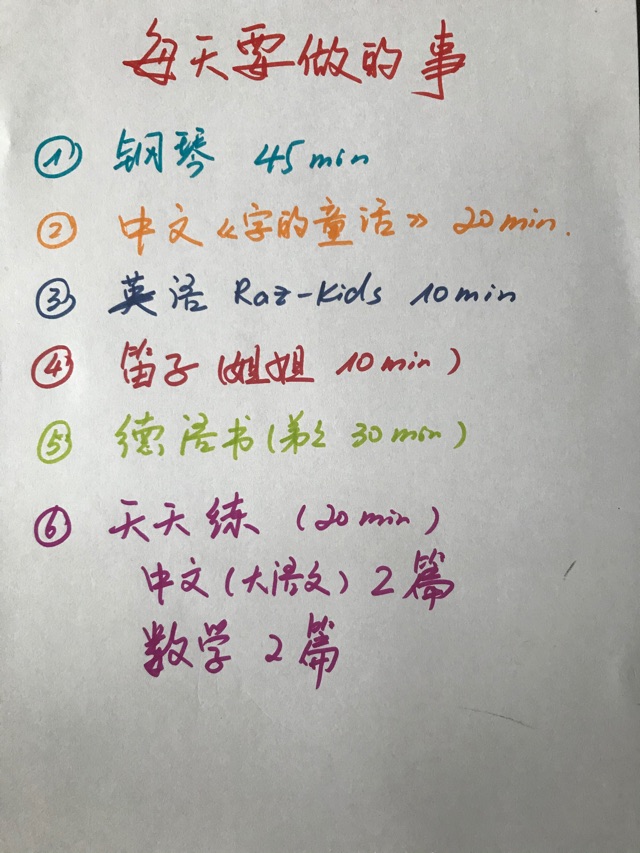 每天要做的事
① 钢琴 45min
② 中文《字的童话》 20min.
③ 英语 Raz-Kids 10min
④ 笛子 (姐姐 10min)
⑤ 德语书 (弟弟 30min)
⑥ 天天练 (20min)
中文(大语文) 2篇
数学 2篇